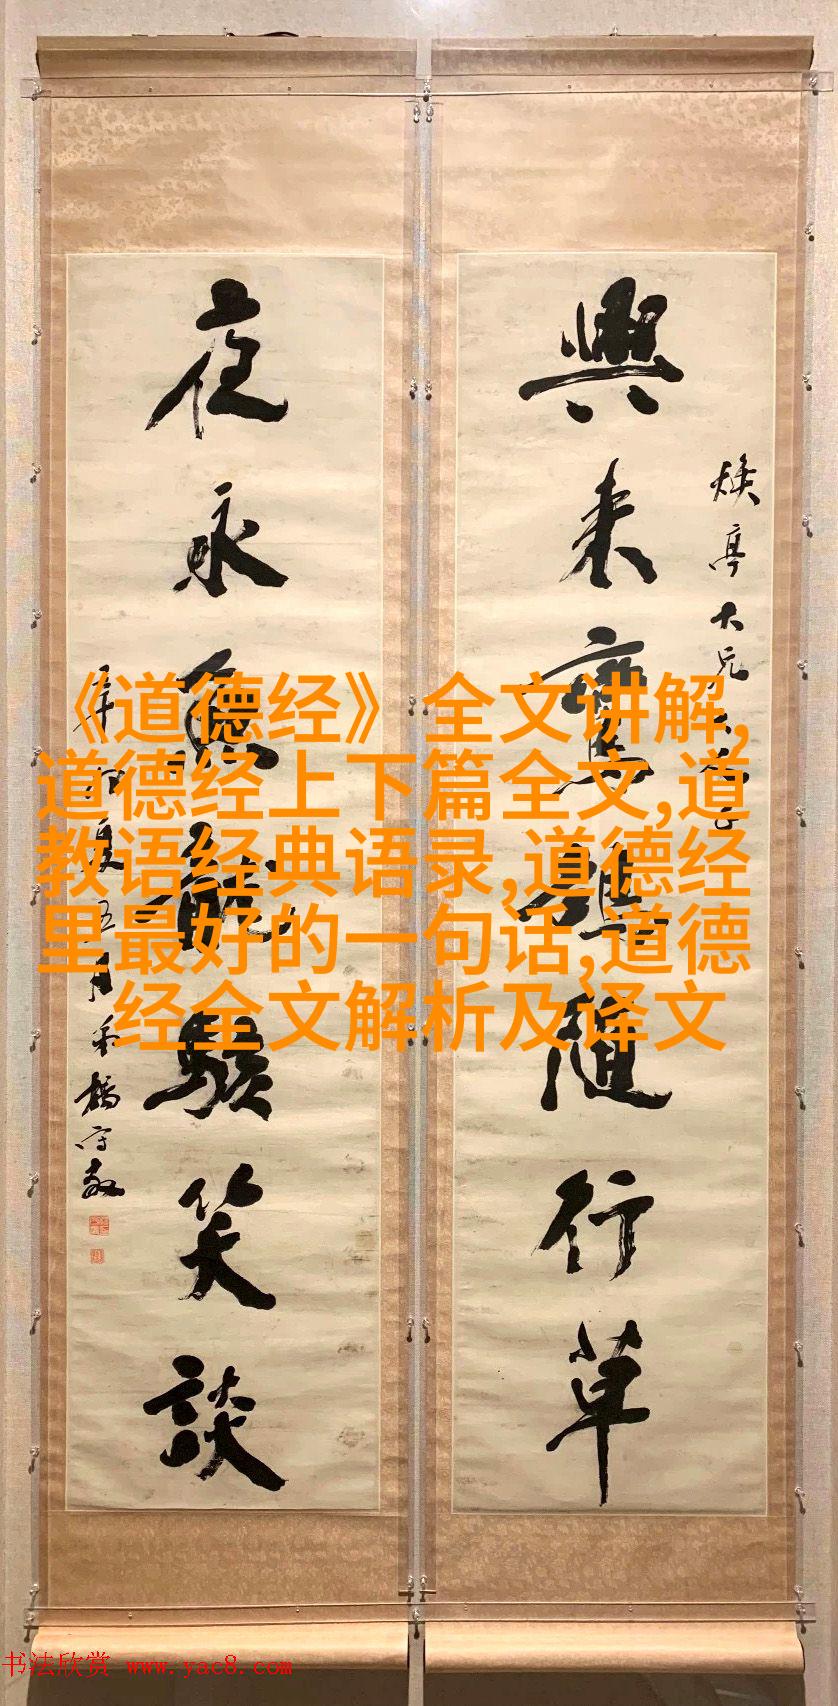 興來鷹隨行草
煥亭大兄大人正
夜永魚龍駭笑談
夏五月楊守敬
《道德经》全文讲解,
道德经上下篇全文,道
教语经典语录,道德经
里最好的一句话,道德
经全文解析及译文
书法欣赏 www.yac8.com